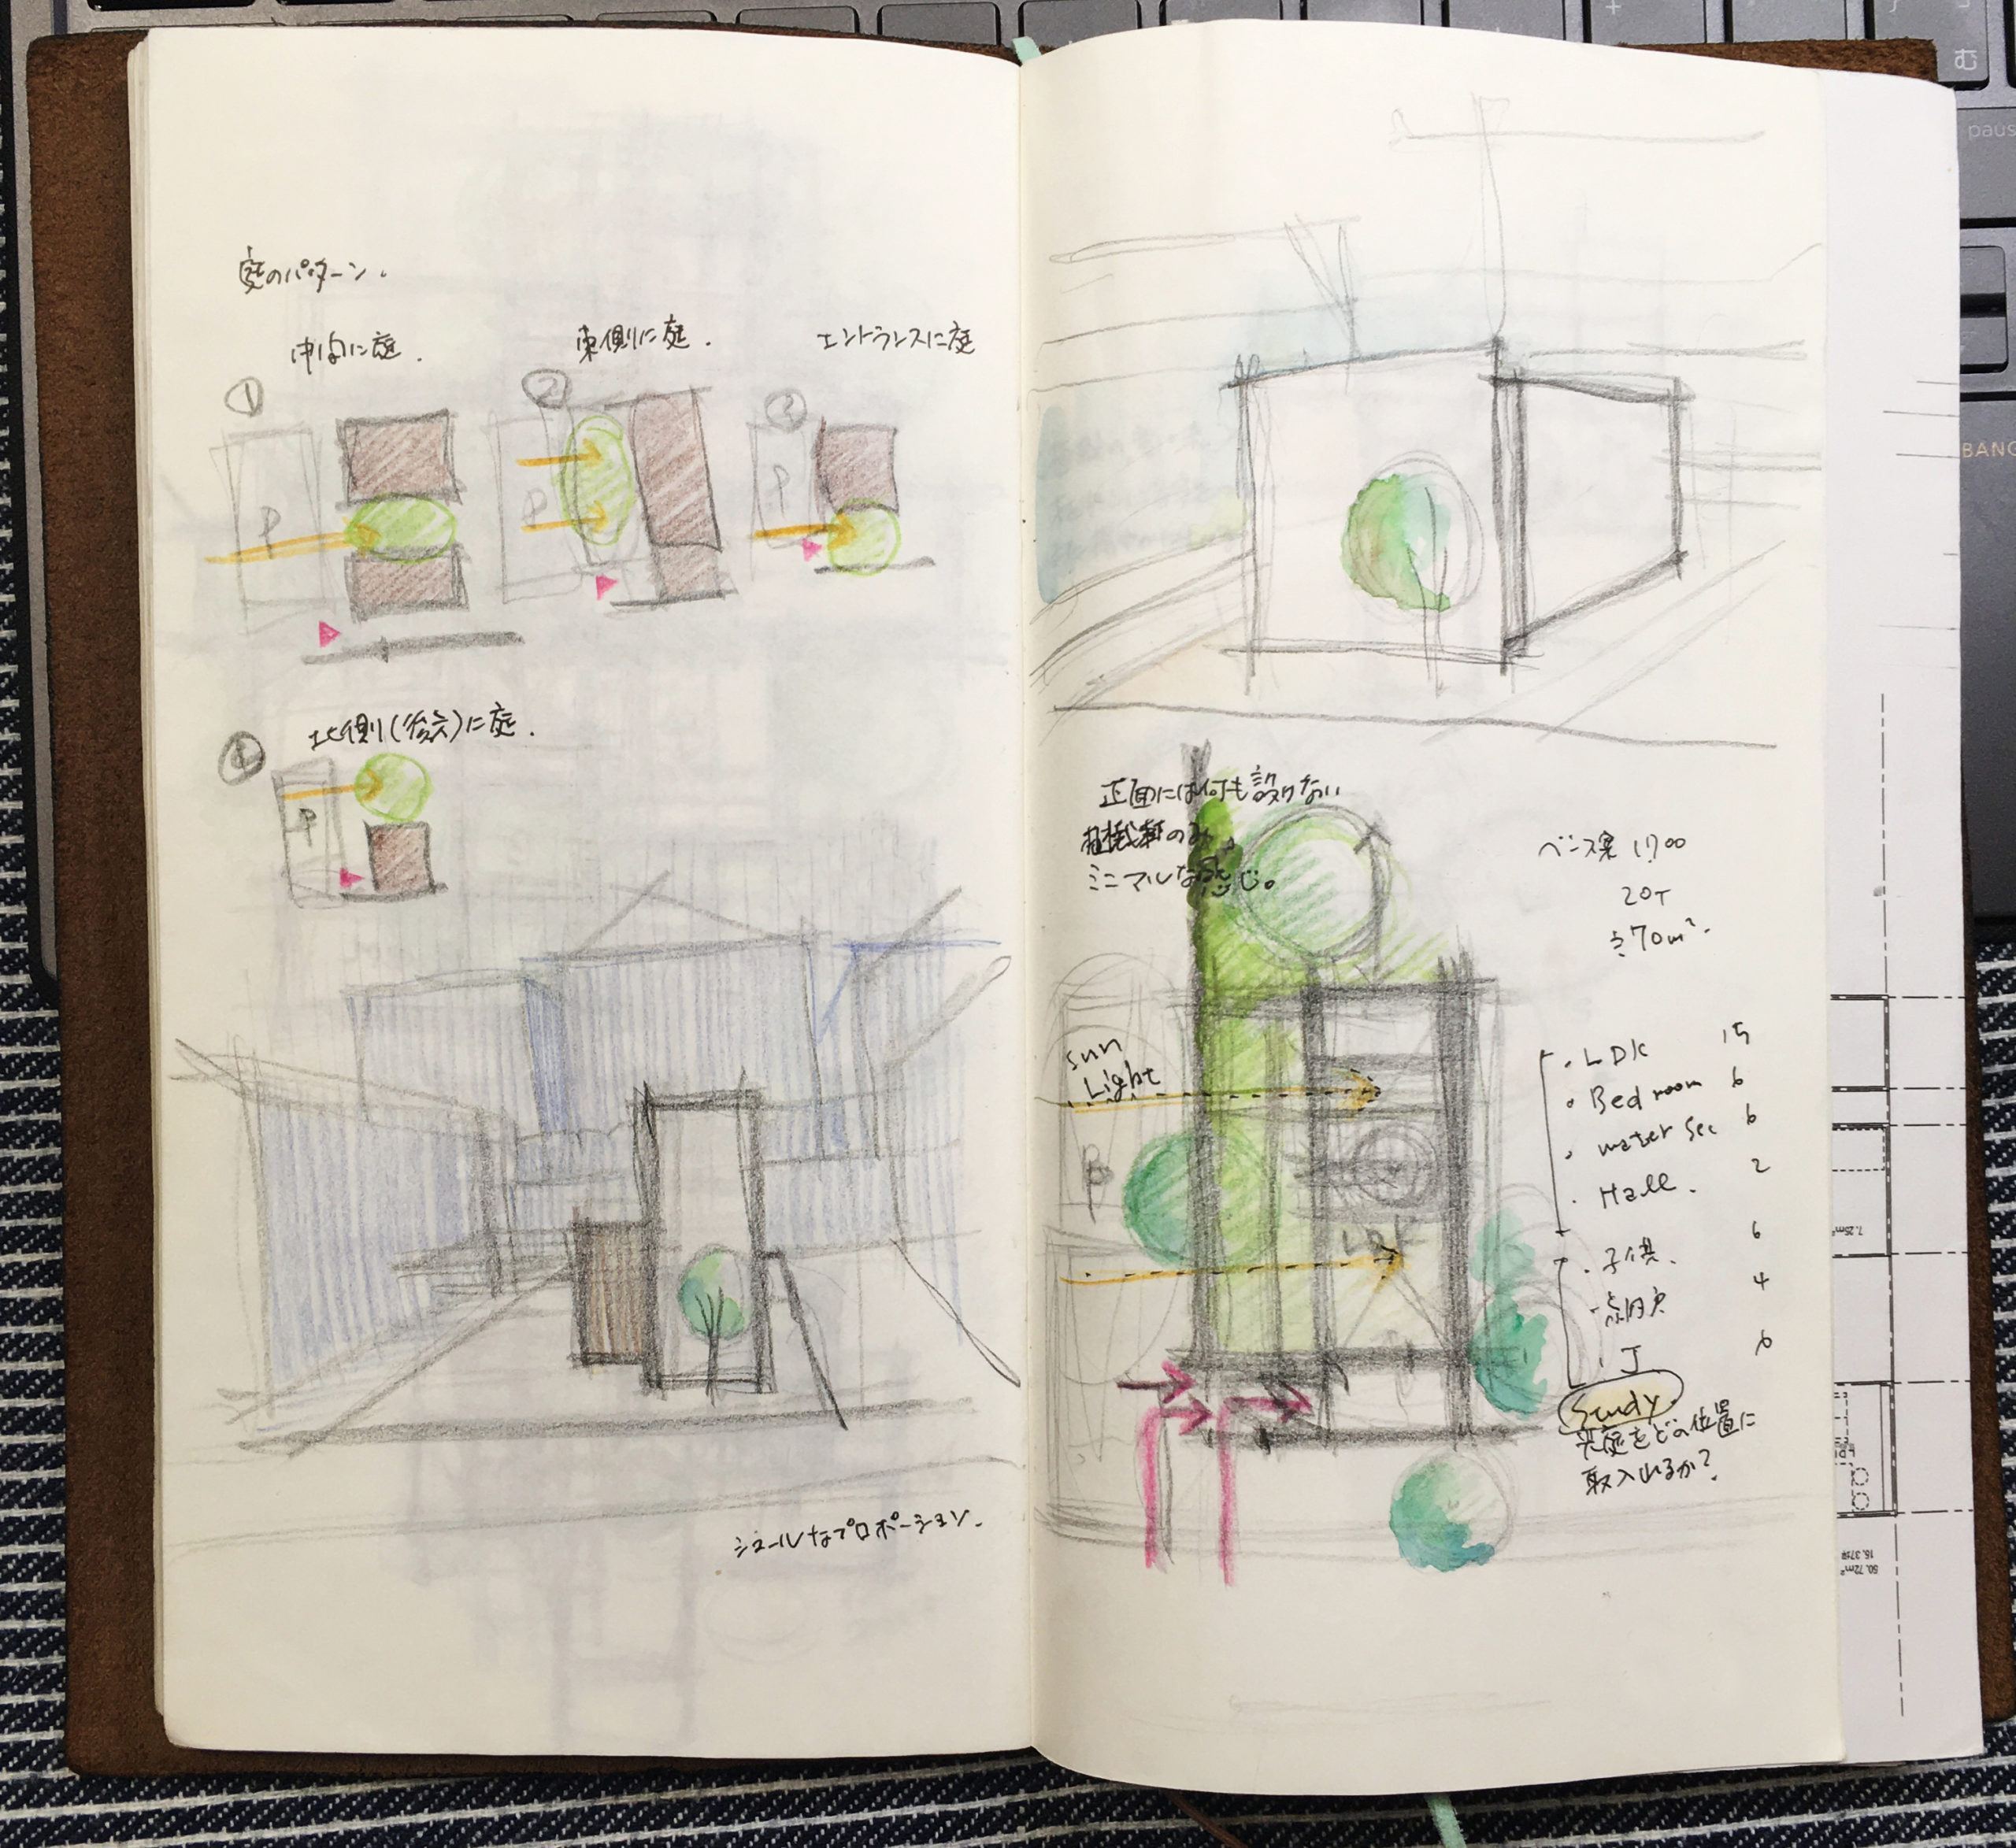 庭のパターン.
中間に庭.
東側に庭.
エントランスに庭
①
②
③
P
P
P
④
北側(後ろ)に庭.
P
シュールなプロポーション.
正面には何も設けない
植栽のみ
ミニマルな感じ。
1700
20T
≒70m².
Sun
Light
P
LDK
・LDK 15
・Bed room 6
・water Sec 6
・Hall. 2
・子供. 6
・納戸 4
・J 6
Study
光庭をどの位置に
取入れるか?
む
paus
BANG
7.25m²
50.72m²